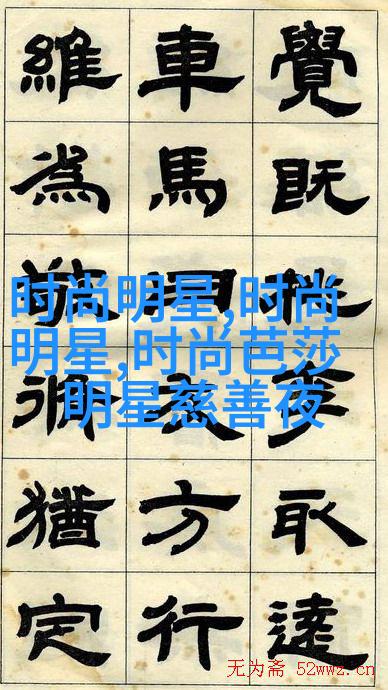 覺既取
車馬方行
維為敬猶定
时尚明星,时尚
明星,时尚芭莎
明星慈善夜
无为斋 52wwz.cn